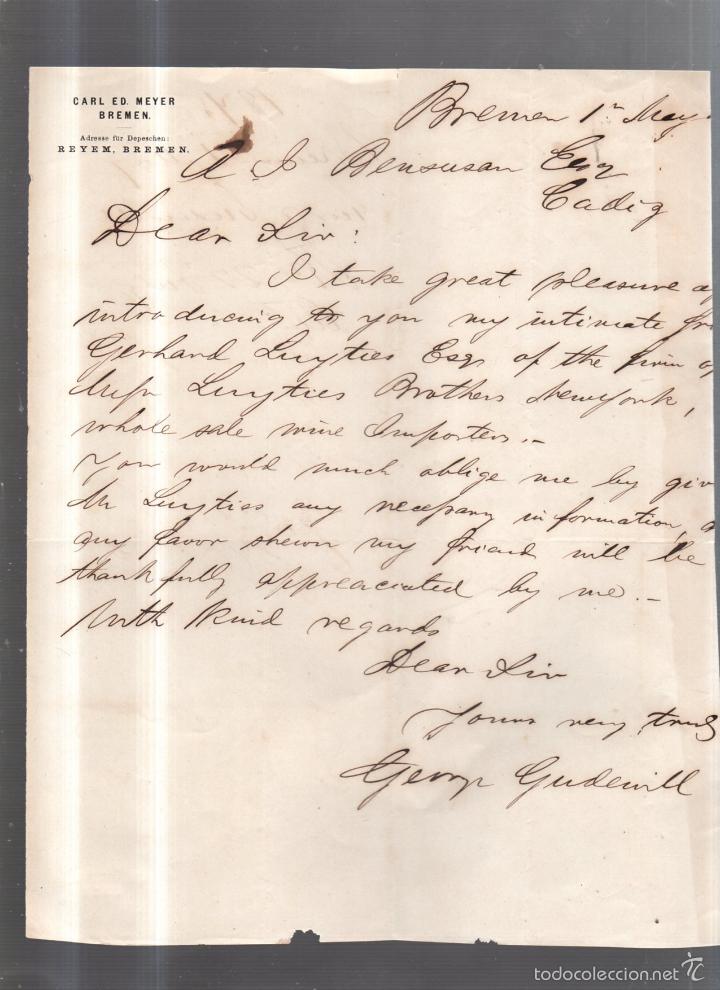 CARL ED. MEYER
BREMEN.
Adresse für Depeschen:
REYEM, BREMEN.
Bremen 1st May
A J Bensusan Esq
Cadiz
Dear Sir:
I take great pleasure of
introducing to you my intimate
Gerhard Luyties Esq of the firm of
Messr Luyties Brothers Newyork,
whole sale wine Importers.-
You would much oblige me by giv
Mr Luyties any necessary information,
any favor shewn my friend will be
thankfully appreaciated by me.-
With Kind regards
Dear Sir
Yours very truly
George Gudewill
todocoleccion.net